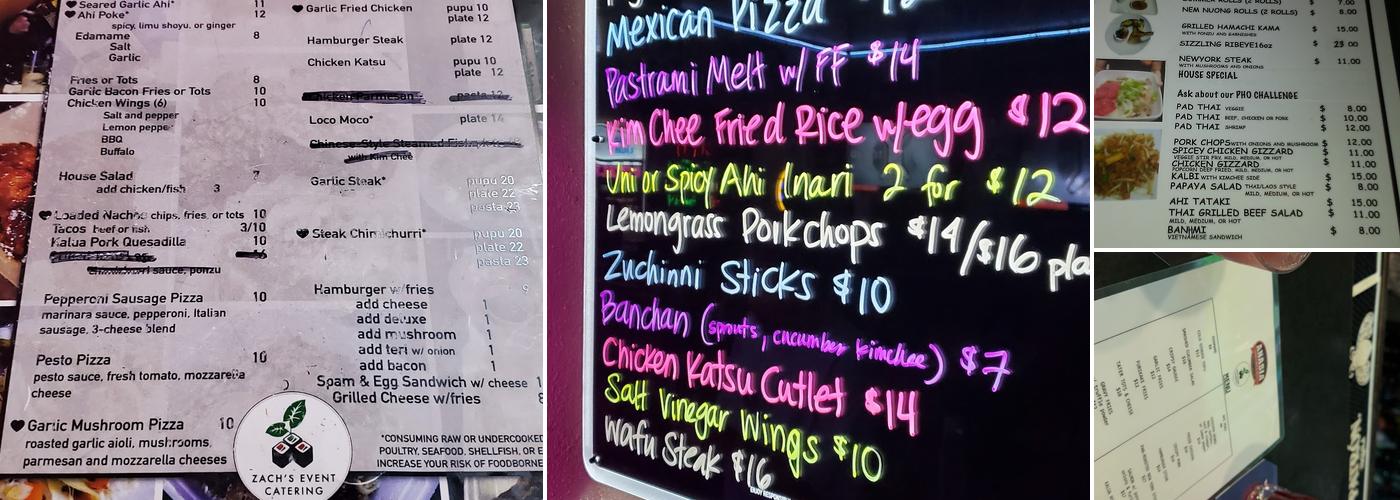 Seared Garlic Ahi* 11
Ahi Poke* 12
spicy, limu shoyu, or ginger
Edamame 8
Salt
Garlic
Fries or Tots 8
Garlic Bacon Fries or Tots 10
Chicken Wings (6) 10
Salt and pepper
Lemon pepper
BBQ
Buffalo
House Salad 7
add chicken/fish 3
Loaded Nachos chips, fries, or tots 10
Tacos beef or fish 3/10
Kalua Pork Quesadilla 10
sauce, ponzu
Pepperoni Sausage Pizza 10
marinara sauce, pepperoni, Italian
sausage, 3-cheese blend
Pesto Pizza 10
pesto sauce, fresh tomato, mozzarella
cheese
Garlic Mushroom Pizza 10
roasted garlic aioli, mushrooms,
parmesan and mozzarella cheeses
Garlic Fried Chicken pupu 10
plate 12
Hamburger Steak plate 12
Chicken Katsu pupu 10
plate 12
Chicken Parmesan plate 12
Loco Moco* plate 14
Chinese Style Steamed Fish
with Kim Chee
Garlic Steak* pupu 20
plate 22
pasta 23
Steak Chimichurri* pupu 20
plate 22
pasta 23
Hamburger w/fries 9
add cheese 1
add deluxe 1
add mushroom 1
add teri w/ onion 1
add bacon 1
Spam & Egg Sandwich w/ cheese 1
Grilled Cheese w/fries 8
ZACH'S EVENT
CATERING
*CONSUMING RAW OR UNDERCOOKED
POULTRY, SEAFOOD, SHELLFISH, OR E
INCREASE YOUR RISK OF FOODBORNE
Mexican Pizza
Pastrami Melt w/ FF $14
Kim Chee Fried Rice w/egg $12
Uni or Spicy Ahi Inari 2 for $12
Lemongrass Porkchops $14/$16 pla
Zuchinni Sticks $10
Banchan (sprouts, cucumber kimchee) $7
Chicken Katsu Cutlet $14
Salt Vinegar Wings $10
Wafu Steak $16
SUMMER ROLLS (2 ROLLS) $ 7.00
NEM NUONG ROLLS (2 ROLLS) $ 8.00
GRILLED HAMACHI KAMA $ 15.00
WITH PONZU AND GARNISHES
SIZZLING RIBEYE16oz $ 23.00
NEWYORK STEAK $ 11.00
WITH MUSHROOMS AND ONIONS
HOUSE SPECIAL
Ask about our PHO CHALLENGE
PAD THAI VEGGIE $ 8.00
PAD THAI BEEF, CHICKEN OR PORK $ 10.00
PAD THAI SHRIMP $ 12.00
PORK CHOPS WITH ONIONS AND MUSHROOM $ 12.00
SPICEY CHICKEN GIZZARD $ 11.00
VEGGIE STIR FRY, MILD, MEDIUM, OR HOT
CHICKEN GIZZARD $ 11.00
POPCORN DEEP FRIED, MILD, MEDIUM, OR HOT
KALBI WITH KIMCHEE SIDE $ 15.00
PAPAYA SALAD THAI/LAOS STYLE $ 8.00
MILD, MEDIUM, OR HOT
AHI TATAKI $ 15.00
THAI GRILLED BEEF SALAD $ 11.00
MILD, MEDIUM, OR HOT
BANHMI $ 8.00
VIETNAMESE SANDWICH
MENU